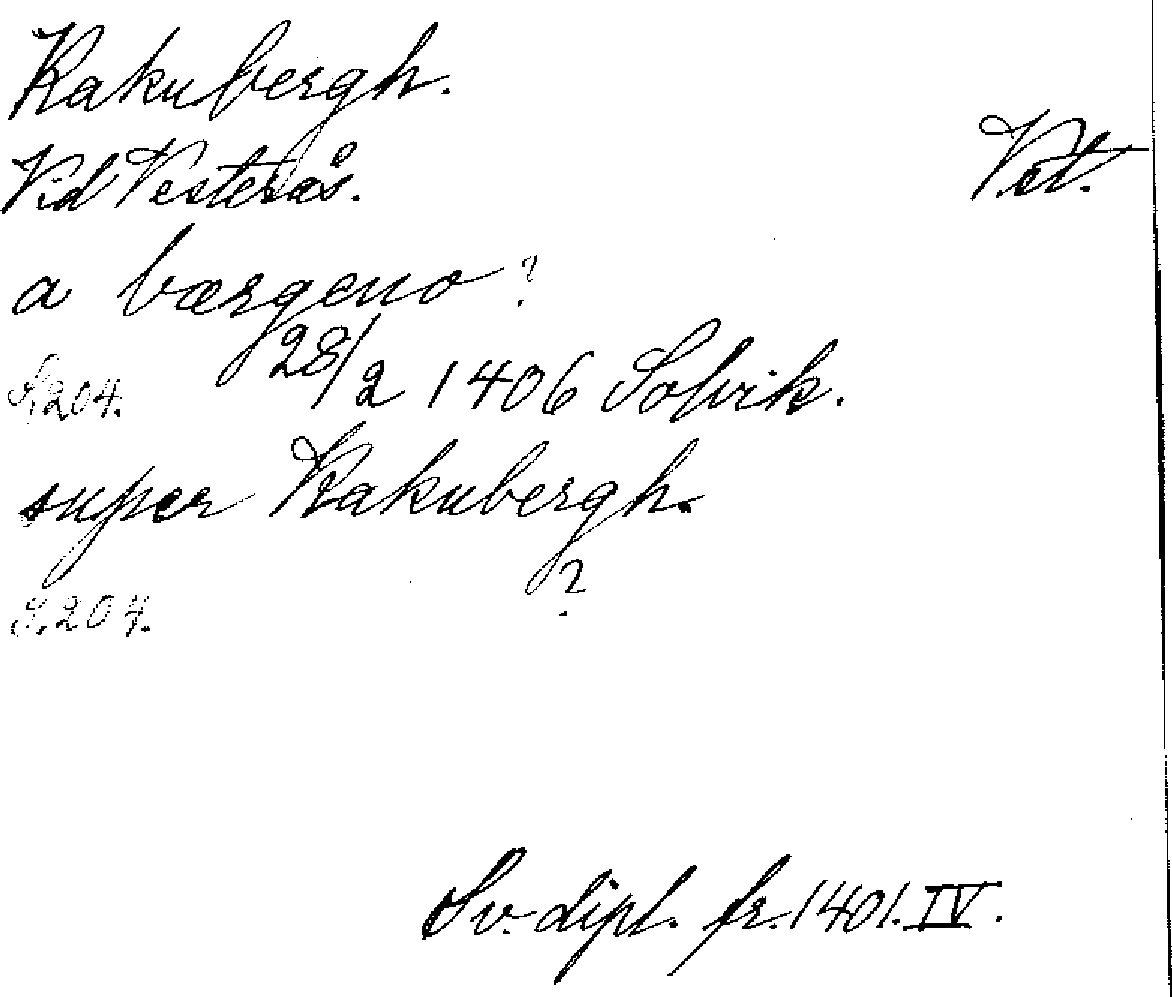 Kakubergh.
Vid Vesterås.
Vst.
a bærgeno?
28/2 1406 Solvik.
S. 204.
super Kakubergh.
?
S. 204.
Sv. dipl. fr. 1401. IV.